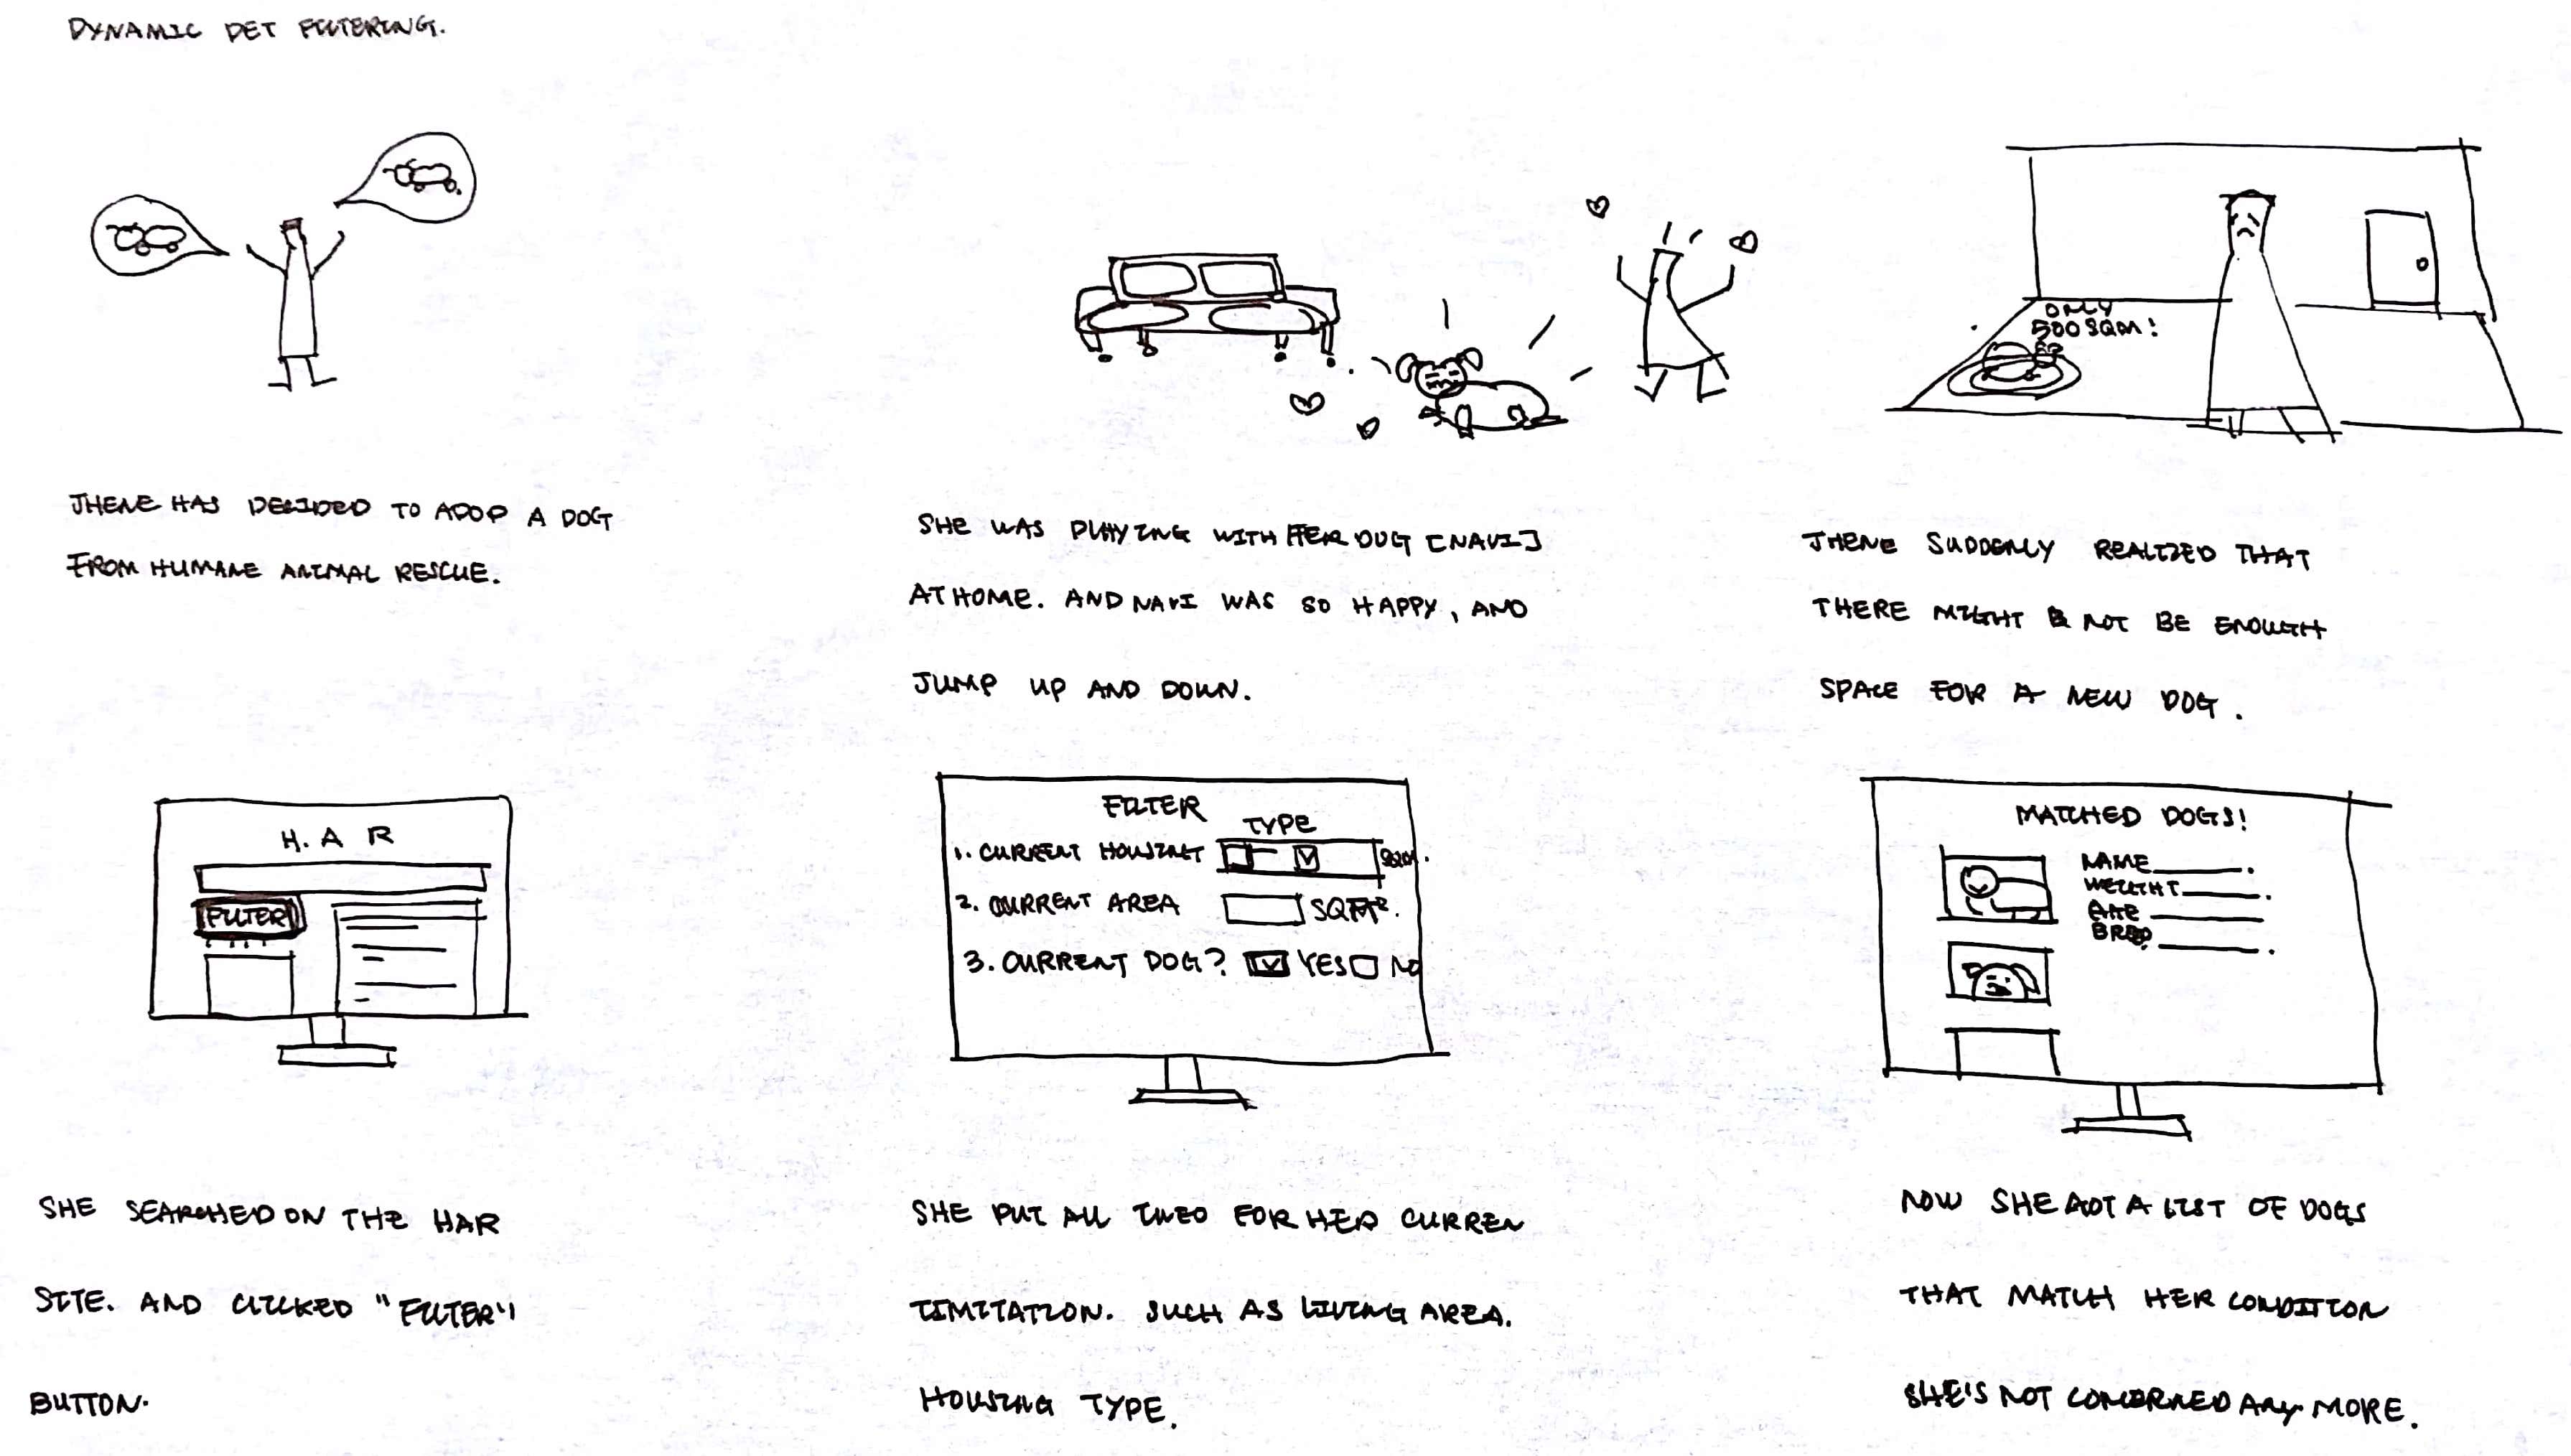 DYNAMIC PET FILTERING.
JHENE HAS DECIDED TO ADOP A DOG
FROM HUMANE ANIMAL RESCUE.
SHE WAS PLAYING WITH HER DOG [NAVI]
AT HOME. AND NAVI WAS SO HAPPY, AND
JUMP UP AND DOWN.
ONLY
500 SQM!
JHENE SUDDENLY REALIZED THAT
THERE MIGHT NOT BE ENOUGH
SPACE FOR A NEW DOG.
H.A R
FILTER
SHE SEARCHED ON THE HAR
SITE. AND CLICKED "FILTER"
BUTTON.
FILTER
TYPE
1. CURRENT HOUSING
2. CURRENT AREA SQFT².
3. CURRENT DOG? YES NO
SHE PUT ALL INFO FOR HER CURREN
LIMITATION. SUCH AS LIVING AREA.
HOUSING TYPE.
MATCHED DOGS!
NAME.
WEIGHT.
AGE
BRED.
NOW SHE GOT A LIST OF DOGS
THAT MATCH HER CONDITION
SHE'S NOT CONCERNED ANY MORE.